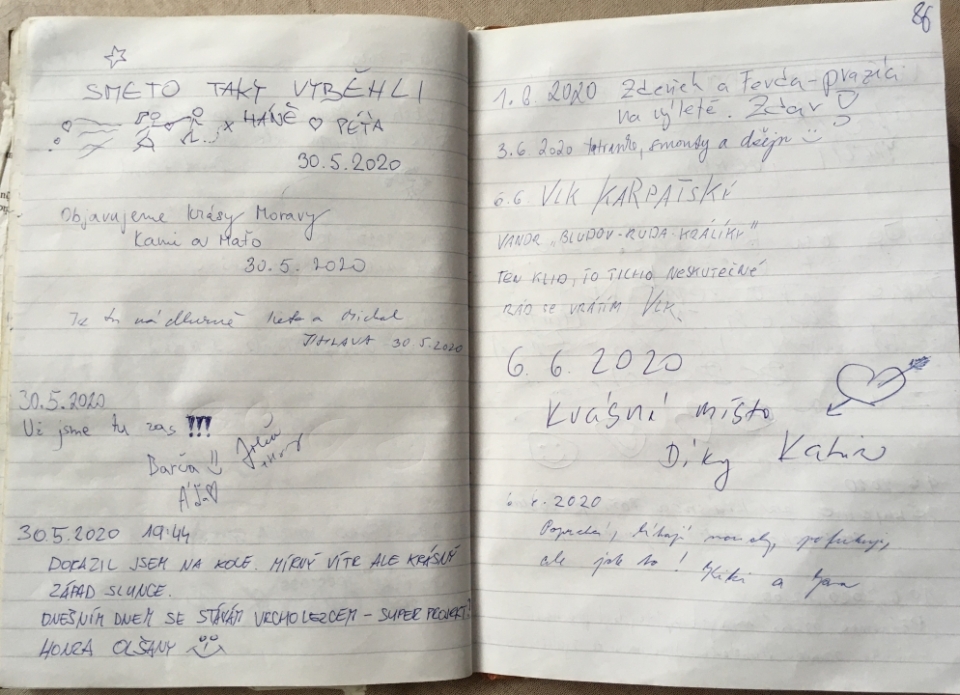 SMETO TAKY VYBĚHLI
x HANĚ ♡ PÉŤA
30.5.2020
Objavujeme krásy Moravy
Kami a Maťo
30.5.2020
Je tu nádherně a Michal
JIHLAVA 30.5.2020
30.5.2020
Už jsme tu zas !!!
Barča
30.5.2020 19:44
DORAZIL JSEM NA KOLE. MÍRNÝ VÍTR ALE KRÁSNÝ
ZÁPAD SLUNCE.
DNEŠNÍM DNEM SE STÁVÁM VRCHOLEZCEM – SUPER PROJEKT!
HONZA OLŠANY
86
1.6.2020 Zdeněk a Ferda – pražáci
na výletě. Zdar
3.6 2020 smondy a
6.6 VLK KARPATSKÝ
VANDR „BLUDOV-RUDA-KRÁLÍKY"
TEN KLID, TO TICHO NESKUTEČNÉ
RÁD SE VRÁTÍM VLK
6.6.2020
Kvásné místo
Díky
2020
ale jak to! a Jana